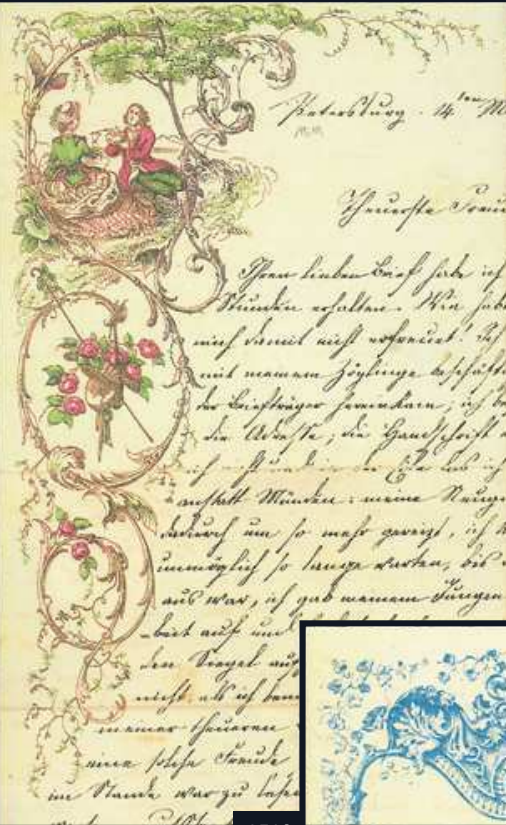 Petersburg. 14ten M
Theuerste Freun
Ihren lieben Brief habe ich
Stunden erhalten. Wie habe
mich damit nicht erfreuet! Ich
mit meinem Zöglinge beschäft
der Briefträger hereinkam; ich be
die Adresse; die Handschrift
ich
anstatt München: meine Neugi
dadurch um so mehr gereizt, ich k
unmöglich so lange warten, bis
aus war, ich gab meinem Jungen
-beit auf und
den Siegel auf
nicht, als ich
meiner theueren
eine solche Freude
im Stande war zu lesen